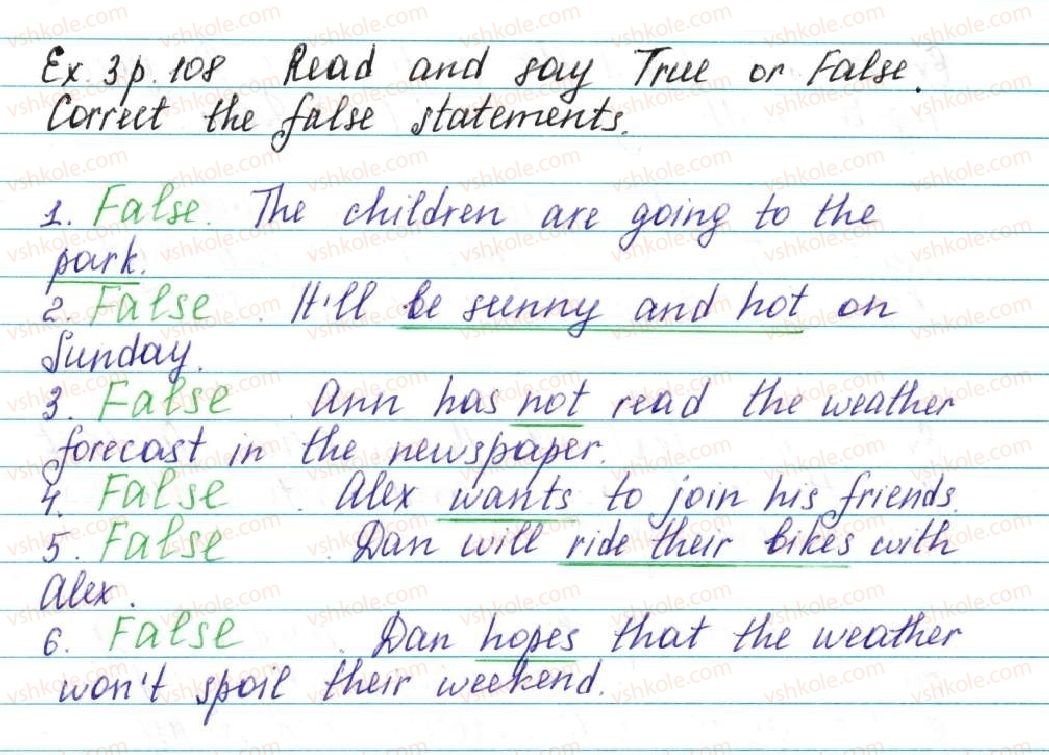 Ex. 3 p. 108 Read and say True or False.
Correct the false statements.
1. False. The children are going to the
park.
2. False. It'll be sunny and hot on
Sunday.
3. False. Ann has not read the weather
forecast in the newspaper.
4. False. Alex wants to join his friends.
5. False. Dan will ride their bikes with
Alex.
6. False. Dan hopes that the weather
won't spoil their weekend.